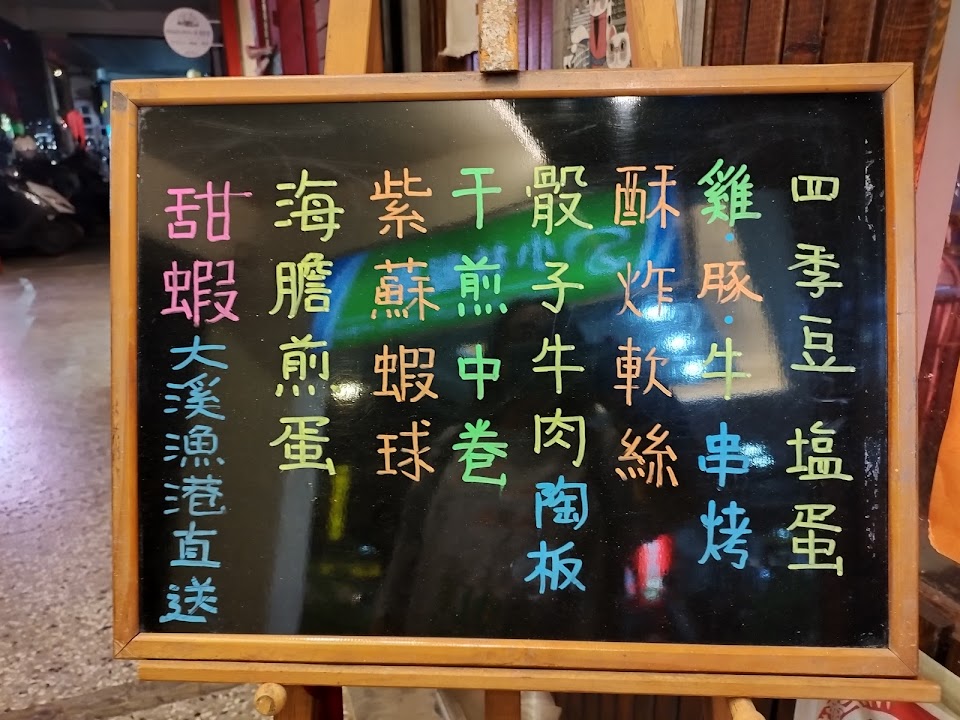 四季豆 塩蛋
雞·豚·牛 串烤
酥炸軟絲
骰子牛肉 陶板
干煎中卷
紫蘇蝦球
海膽煎蛋
甜蝦 大溪漁港直送